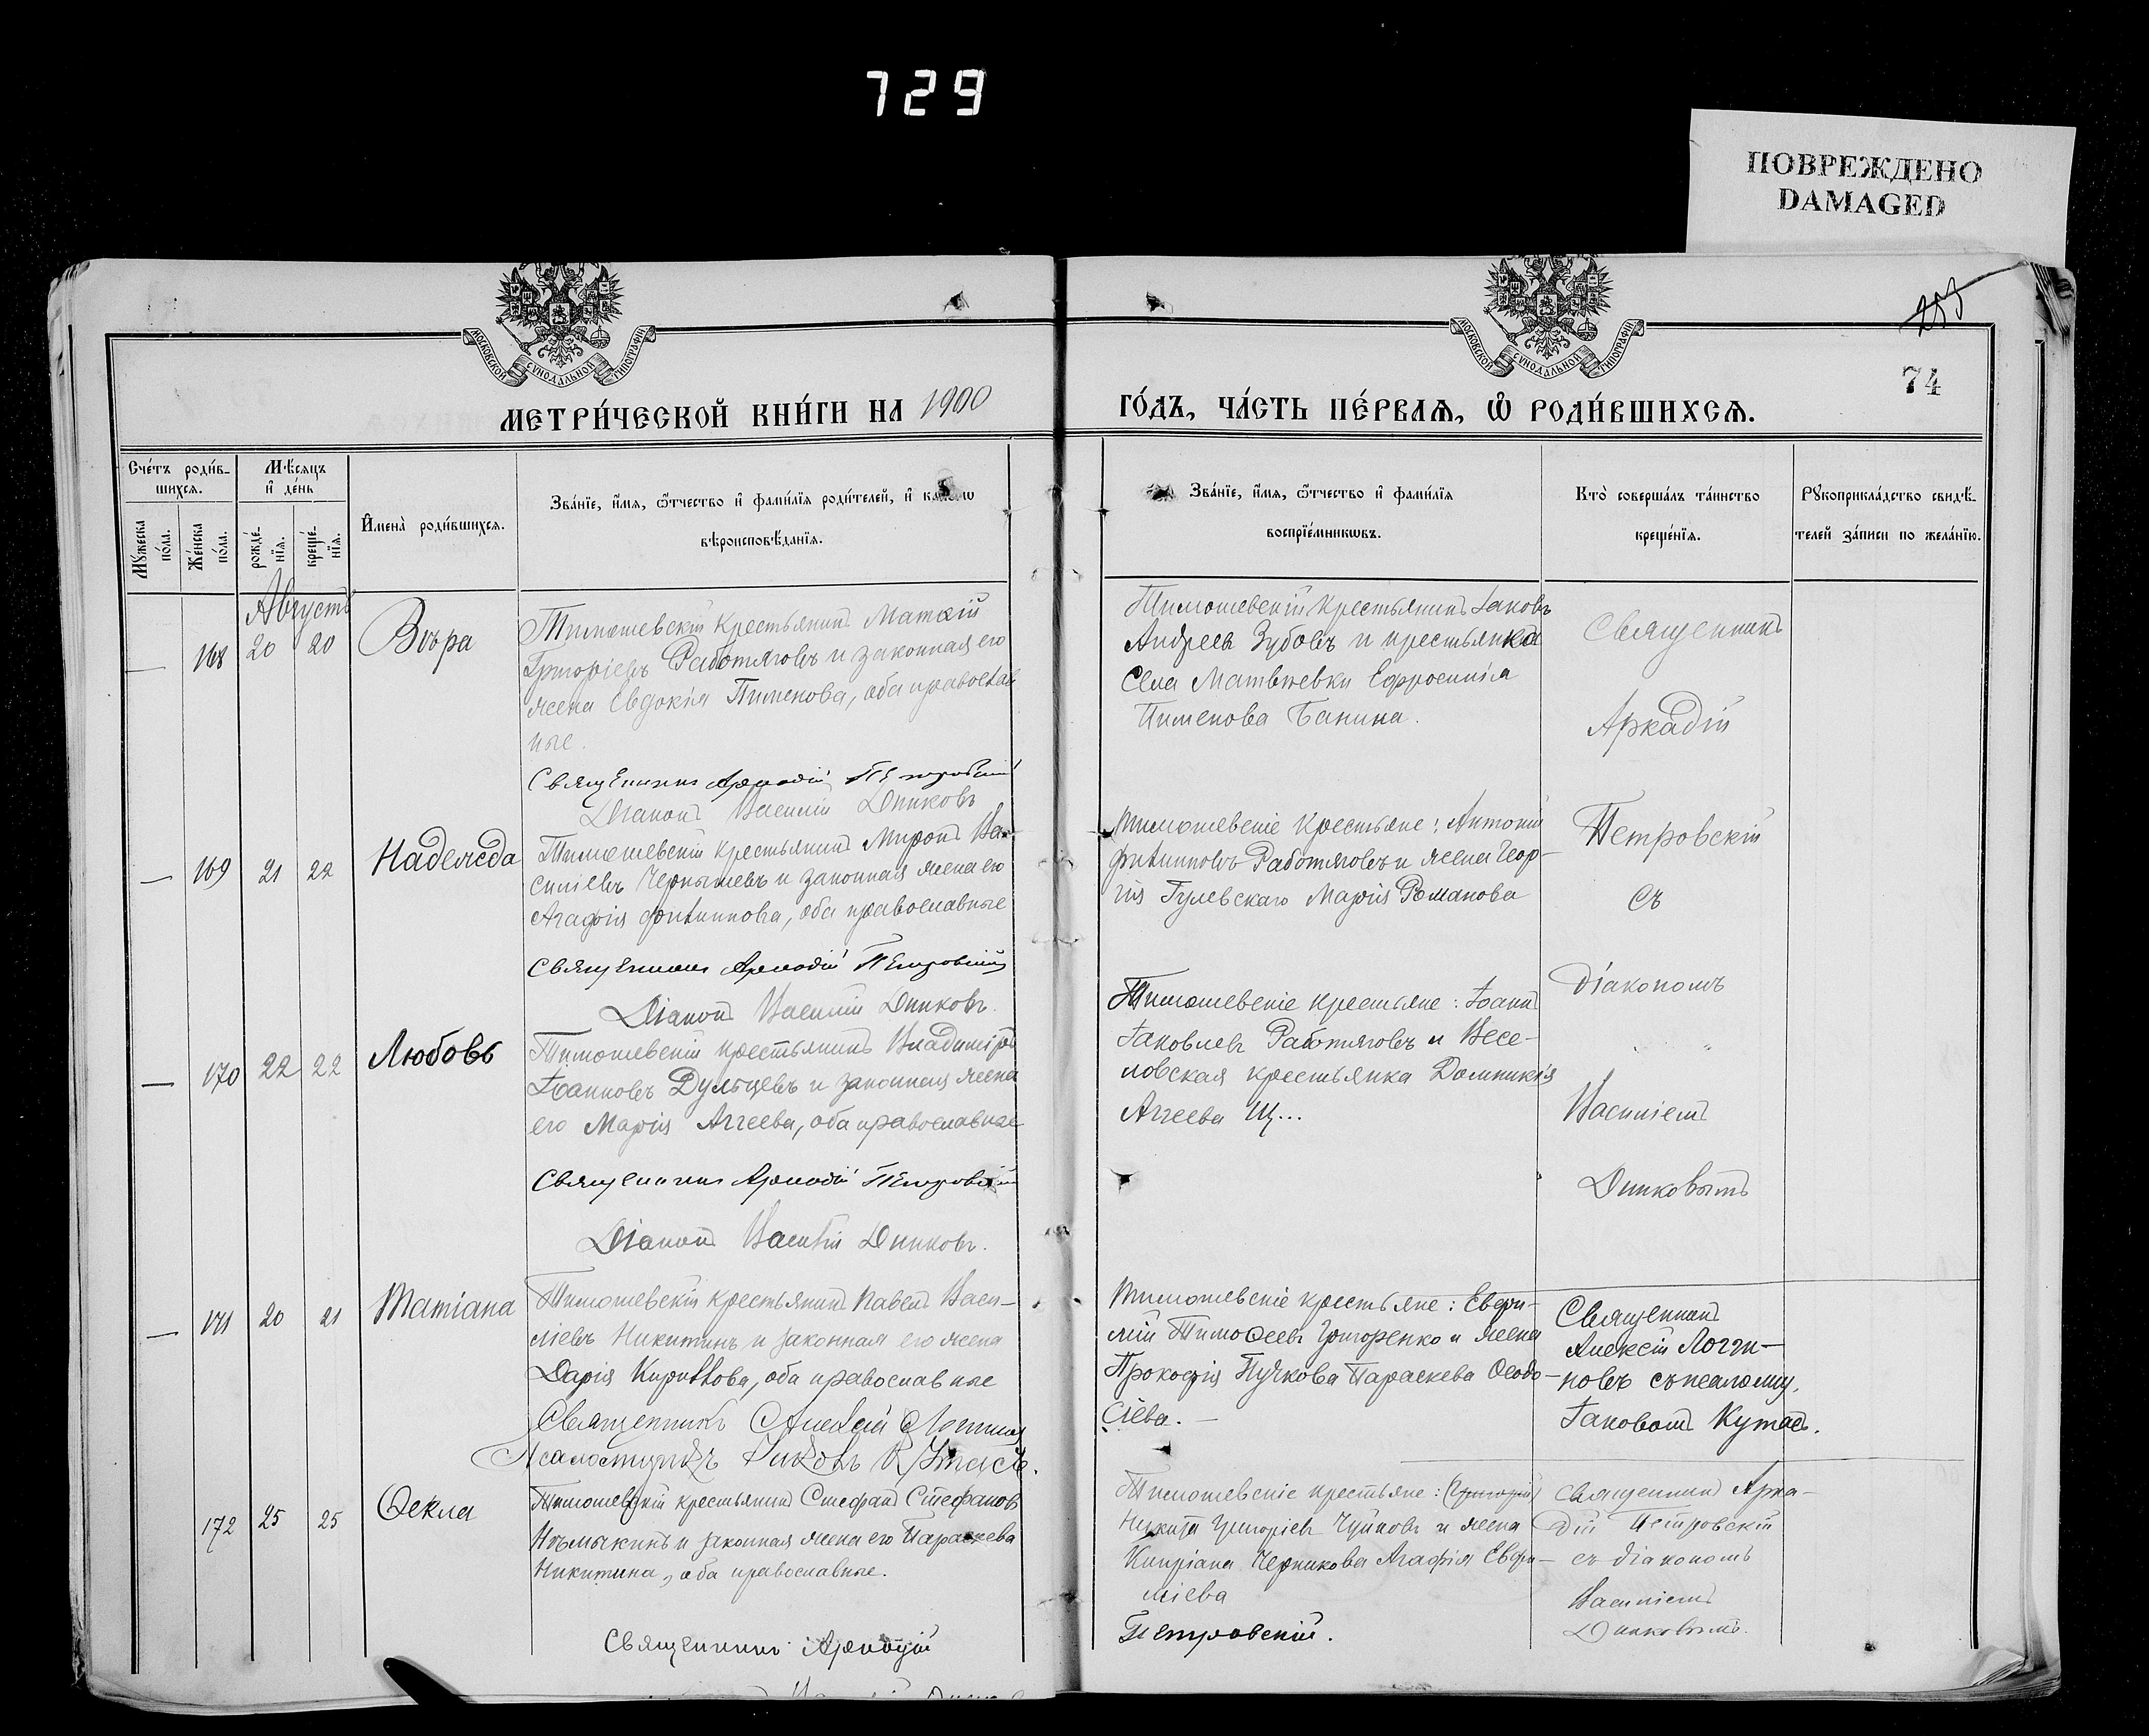 729
ПОВРЕЖДЕНО
DAMAGED
МОСКОВСКОЙ СУНОДАЛЬНОЙ ТИПОГРАФІИ
МОСКОВСКОЙ СУНОДАЛЬНОЙ ТИПОГРАФІИ
74
МЕТРИ́ЧЕСКОЙ КНИ́ГИ НА 1900
ГО́ДЪ, ЧА́СТЬ ПЕ́РВАѦ, Ѡ РОДИ́ВШИХСѦ.
Сче́тъ роди́в-
шихсѧ.
Мѣ́сяцъ
и де́нь
Мꙋжеска
по́ла.
Же́нска
по́ла.
рожде́-
нїѧ.
креще́-
нїѧ.
Имена̀ роди́вшихсѧ.
Зва́нїе, и́мѧ, ѻ́тчество и фами́лїѧ роди́телей, и
вѣроисповѣ́данїѧ.
Зва́нїе, и́мѧ, ѻ́тчество и фами́лїѧ
воспрїе́мникѡвъ.
Кто̀ соверша́лъ та́инство
креще́нїѧ.
Рꙋкоприкла́дство свидѣ́-
телей за́писи по жела́нїю.
Августъ
168 20 20 Вѣра
Тимошевскій крестьянинъ Матѳій
Григоріевъ Работяговъ и законная его
жена Евдокія Пименова, оба православ
ные.
Священникъ Аркадій Петровскій
Діаконъ Василій Динковъ
Тимошевскій крестьянинъ Іаковъ
Андреевъ Зубовъ и крестьянка
Села Матвѣевки Ефросинія
Пименова Банина.
Священникъ
Аркадій
Петровскій
съ
діакономъ
Василіемъ
Динковымъ
169 21 22 Надежда
Тимошевскій крестьянинъ Миронъ Ва-
силіевъ Чернышевъ и законная жена его
Агафія Филиппова, оба православные
Священникъ Аркадій Петровскій
Діаконъ Василій Динковъ.
Тимошевскіе крестьяне: Антоній
Филипповъ Работяговъ и жена Геор-
гія Гулевскаго Марія Романова
170 22 22 Любовь
Тимошевскій крестьянинъ Владиміръ
Іоанновъ Дульцевъ и законная жена
его Марія Аггеева, оба православные
Священникъ Аркадій Петровскій
Діаконъ Василій Динковъ.
Тимошевскіе крестьяне: Іоаннъ
Іаковлевъ Работяговъ и Весе-
ловская крестьянка Домникія
Аггеева Щ...
171 20 21 Татіана
Тимошевскій крестьянинъ Павелъ Васи-
ліевъ Никитинъ и законная его жена
Дарія Кириллова, оба православные
Священникъ Алексій Логгинов
Псаломщикъ Іаковъ Кутасъ.
Тимошевскіе крестьяне: Евфи-
мій Тимоѳеевъ Григоренко и жена
Прокофія Пучкова Параскева Ѳеодо-
сіева. -
Священникъ
Алексій Логги-
новъ съ псаломщ.
Іаковомъ Кутас.
172 25 25 Ѳекла
Тимошевскій крестьянинъ Стефанъ Стефановъ
Нѣмыкинъ и законная жена его Параскева
Никитина, оба православные.
Священникъ Аркадій
Петровскій.
Тимошевскіе крестьяне: (Григорій)
Никита Григоріевъ Чуйковъ и жена
Кипріана Черникова Агафія Евфи-
міева
Священникъ Арка-
дій Петровскій
съ діакономъ
Василіемъ
Динковымъ.